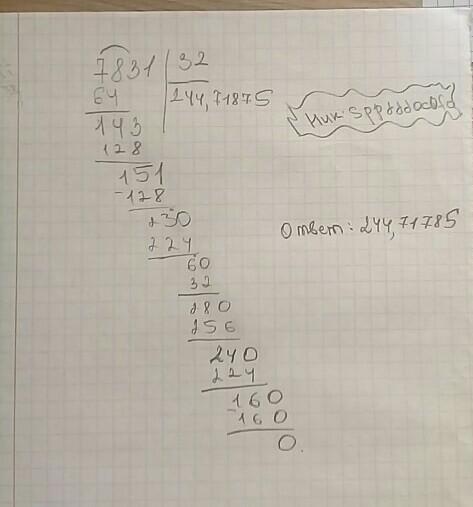 7831 32
64 244,71875
143
128
151
-128
230
224
60
32
280
256
240
224
160
-160
0.
Ответ: 244,71785